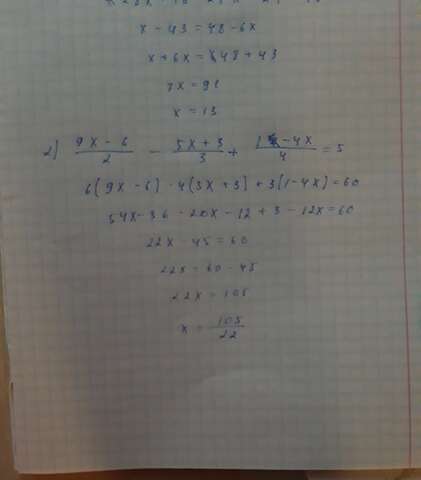 x - 43 = 48 - 6x
x + 6x = 48 + 43
7x = 91
x = 13
2) \frac{9x - 6}{2} - \frac{5x + 3}{3} + \frac{1 - 4x}{4} = 5
6(9x - 6) - 4(5x + 3) + 3(1 - 4x) = 60
54x - 36 - 20x - 12 + 3 - 12x = 60
22x - 45 = 60
22x = 60 - 45
22x = 105
x = \frac{105}{22}